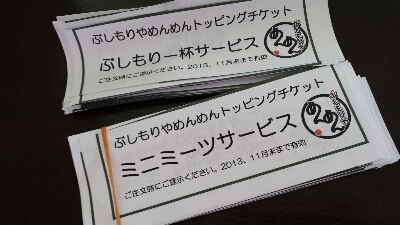 ぶしもりやめんめんトッピングチケット
ぶしもり一杯サービス
ご注文時にご提示ください。2013、11月末まで有効
めんめん
ぶしもりやめんめんトッピングチケット
ミニミーツサービス
ご注文時にご提示ください。2013、11月末まで有効
めんめん